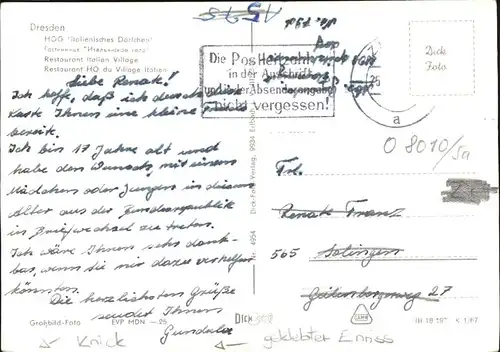 Dresden
HOG "Italienisches Dörfchen"
Restaurant Italien Village
Restaurant HO du Village Italien
Liebe Renate!
Ich hoffe, daß ich durch diese
Karte Ihnen eine kleine Freude
bereite.
Ich bin 17 Jahre alt und
habe den Wunsch, mit einem
Mädchen oder Jungen in diesem
Alter aus der Bundesrepublik
in Briefwechsel zu treten.
Ich wäre Ihnen sehr dank-
bar, wenn Sie mir dazu verhelfen
könnten.
Die herzlichsten Grüße
sendet Ihnen
Gundula
Großbild-Foto EVP MDN -.25
Die Postleitzahl
in der Anschrift
und der Absenderangabe
nicht vergessen!
25
a
Dick
Foto
O 8010/5a
Frl.
Renate Franz
565 Solingen
27
Dick-Foto-Verlag, 9934 Erlbach
4954
DICK
III 18 197 K 1/67
Knick
geklebter Einriss